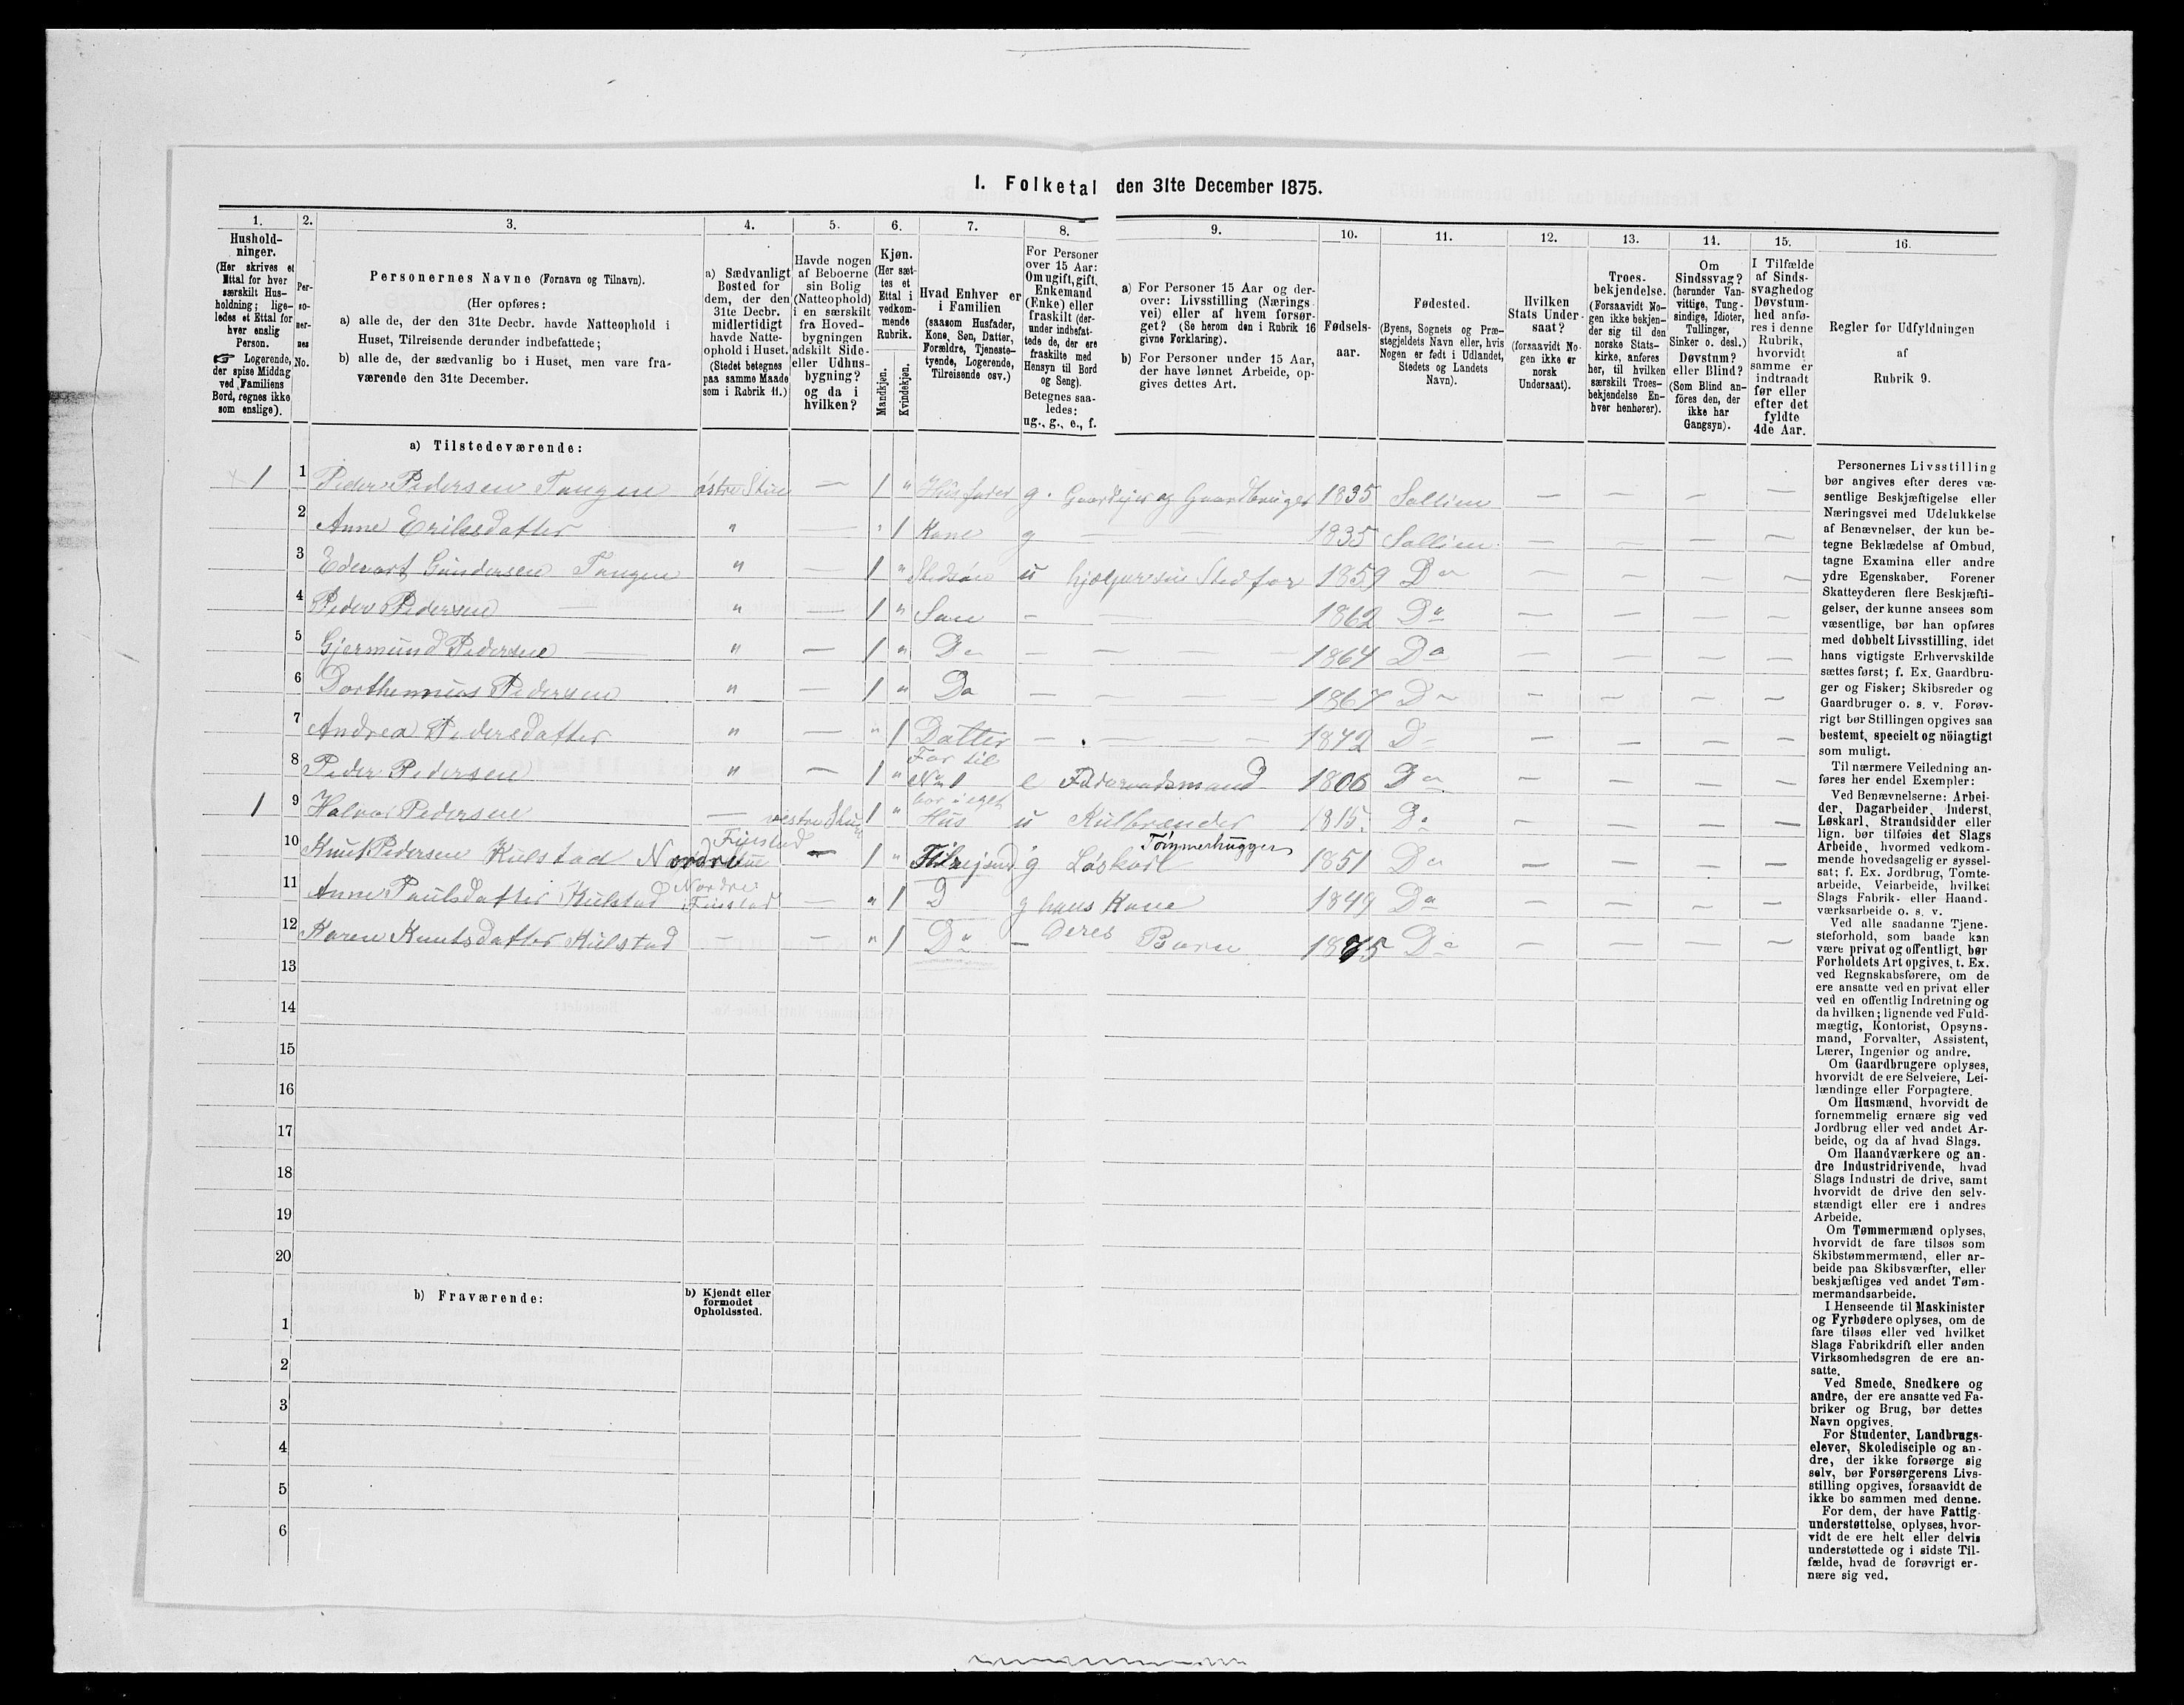 1. Folketal den 31te December 1875.
1. 2. 3. 4. 5. 6. 7. 8. 9. 10. 11. 12. 13. 14. 15. 16.
Hushold-
ninger.
(Her skrives et
Ettal for hver
særskilt Hus-
holdning; lige-
ledes et Ettal for
hver enslig
Person.
☞ Logerende,
der spise Middag
ved Familiens
Bord, regnes ikke
som enslige).
Per-
so-
ner-
nes
No.
Personernes Navne (Fornavn og Tilnavn).
(Her opføres:
a) alle de, der den 31te Decbr. havde Natteophold i
Huset, Tilreisende derunder indbefattede;
b) alle de, der sædvanlig bo i Huset, men vare fra-
værende den 31te December.
a) Sædvanligt
Bosted for
dem, der den
31te Decbr.
midlertidigt
havde Natte-
ophold i Huset.
(Stedet betegnes
paa samme Maade
som i Rubrik 11.)
Havde nogen
af Beboerne
sin Bolig
(Natteophold)
i en særskilt
fra Hoved-
bygningen
adskilt Side-
eller Udhus-
bygning?
og da i
hvilken?
Kjøn.
(Her sæt-
tes et
Ettal i
vedkom-
mende
Rubrik.
Mandkjøn.
Kvindekjøn.
Hvad Enhver er
i Familien
(saasom Husfader,
Kone, Søn, Datter,
Forældre, Tjeneste-
tyende, Logerende,
Tilreisende osv.)
For Personer
over 15 Aar:
Om ugift, gift,
Enkemand
(Enke) eller
fraskilt (der-
under indbefat-
tede de, der ere
fraskilte med
Hensyn til Bord
og Seng).
Betegnes saa-
ledes:
ug., g., e., f.
a) For Personer 15 Aar og der-
over: Livsstilling (Nærings-
vei) eller af hvem forsør-
get? (Se herom den i Rubrik 16
givne Forklaring).
b) For Personer under 15 Aar,
der have lønnet Arbeide, op-
gives dettes Art.
Fødsels-
aar.
Fødested.
(Byens, Sognets og Præ-
stegjeldets Navn eller, hvis
Nogen er født i Udlandet,
Stedets og Landets
Navn).
Hvilken
Stats Under-
saat?
(forsaavidt No-
gen ikke er
norsk
Undersaat).
Troes-
bekjendelse.
(Forsaavidt No-
gen ikke bekjen-
der sig til den
norske Stats-
kirke, anføres
her, til hvilken
særskilt Troes-
bekjendelse En-
hver henhører).
Om
Sindssvag?
(herunder Van-
vittige, Tung-
sindige, Idioter,
Tullinger,
Sinker o. desl.)
Døvstum?
eller Blind?
(Som Blind an-
føres den, der
ikke har
Gangsyn).
I Tilfælde
af Sinds-
svaghed og
Døvstum-
hed anfø-
res i denne
Rubrik,
hvorvidt
samme er
indtraadt
før eller
efter det
fyldte
4de Aar.
Regler for Udfyldningen
af
Rubrik 9.
a) Tilstedeværende:
1 1 Peder Pedersen Tangen østre Stue — 1 " Husfader g. Gaardejer og Gaardbruger 1835 Sollien — — — —
2 Anne Eriksdatter " — " 1 Kone g — — 1835 Sollien — — — —
3 Edevart Gundersen Tangen " — 1 " Stedsøn u hjælper sin Stedfar 1859 Do — — — —
4 Peder Pedersen " — 1 " Søn — — 1862 Do — — — —
5 Gjermund Pedersen " — 1 " Do — — — 1864 Do — — — —
6 Dorthennius Pedersen " — 1 " Do — — — 1867 Do — — — —
7 Andrea Pedersdatter " — " 1 Datter — — — 1872 D — — — —
8 Peder Pedersen " — 1 " Far til No 1 e Føderaadsmand 1806 Do — — — —
1 9 Halvor Pedersen — vestre Stue 1 " bor i eget Hus u Kulbrænder 1815 Do — — — —
10 Knut Pedersen Kulstad Nordre Fiskstad — 1 " Tilrejsend g Løskarl Tømmerhugger 1851 Do — — — —
11 Anne Paulsdatter Kulstad Nordre — " 1 D g hans Kone 1849 Do — — — —
12 Karen Knutsdatter Kulstad — — " 1 Do — Deres Barn 1875 Do — — — —
13
14
15
16
17
18
19
20
b) Fraværende:
b) Kjendt eller
formodet
Opholdssted.
1
2
3
4
5
6
Personernes Livsstilling
bør angives efter deres væ-
sentlige Beskjæftigelse eller
Næringsvei med Udelukkelse
af Benævnelser, der kun be-
tegne Beklædelse af Ombud,
tagne Examina eller andre
ydre Egenskaber. Forener
Skatteyderen flere Beskjæfti-
gelser, der kunne ansees som
væsentlige, bør han opføres
med dobbelt Livsstilling, idet
hans vigtigste Erhvervskilde
sættes først; f. Ex. Gaardbru-
ger og Fisker; Skibsreder og
Gaardbruger o. s. v. Forøv-
rigt bør Stillingen opgives saa
bestemt, specielt og nöiagtigt
som muligt.
Til nærmere Veiledning an-
føres her endel Exempler:
Ved Benævnelserne: Arbei-
der, Dagarbeider, Inderst,
Løskarl, Strandsidder eller
lign. bør tilføies det Slags
Arbeide, hvormed vedkom-
mende hovedsagelig er syssel-
sat; f. Ex. Jordbrug, Tomte-
arbeide, Veiarbeide, hvilket
Slags Fabrik- eller Haand-
værksarbeide o. s. v.
Ved alle saadanne Tjene-
steforhold, som baade kan
være privat og offentligt, bør
Forholdets Art opgives, t. Ex.
ved Regnskabsførere, om de
ere ansatte ved en privat eller
ved en offentlig Indretning og
da hvilken; lignende ved Fuld-
mægtig, Kontorist, Opsyns-
mand, Forvalter, Assistent,
Lærer, Ingeniør og andre.
Om Gaardbrugere oplyses,
hvorvidt de ere Selveiere, Lei-
lændinge eller Forpagtere.
Om Husmænd, hvorvidt de
fornemmelig ernære sig ved
Jordbrug eller ved andet Ar-
beide, og da af hvad Slags.
Om Haandværkere og an-
dre Industridrivende, hvad
Slags Industri de drive, samt
hvorvidt de drive den selv-
stændigt eller ere i andres
Arbeide.
Om Tømmermænd oplyses,
hvorvidt de fare tilsøs som
Skibstømmermænd, eller ar-
beide paa Skibsværfter, eller
beskjæftiges ved andet Tøm-
mermandsarbeide.
I Henseende til Maskinister
og Fyrbødere oplyses, om de
fare tilsøs eller ved hvilket
Slags Fabrikdrift eller anden
Virksomhedsgren de ere an-
satte.
Ved Smede, Snedkere og
andre, der ere ansatte ved Fa-
briker og Brug, bør dettes
Navn opgives.
For Studenter, Landbrugs-
elever, Skoledisciple og an-
dre, der ikke forsørge sig
selv, bør Forsørgerens Livs-
stilling opgives, forsaavidt de
ikke bo sammen med denne.
For dem, der have Fattig-
understøttelse, oplyses, hvor-
vidt de ere helt eller delvis
understøttede og i sidste Til-
fælde, hvad de forøvrigt er-
nære sig ved.